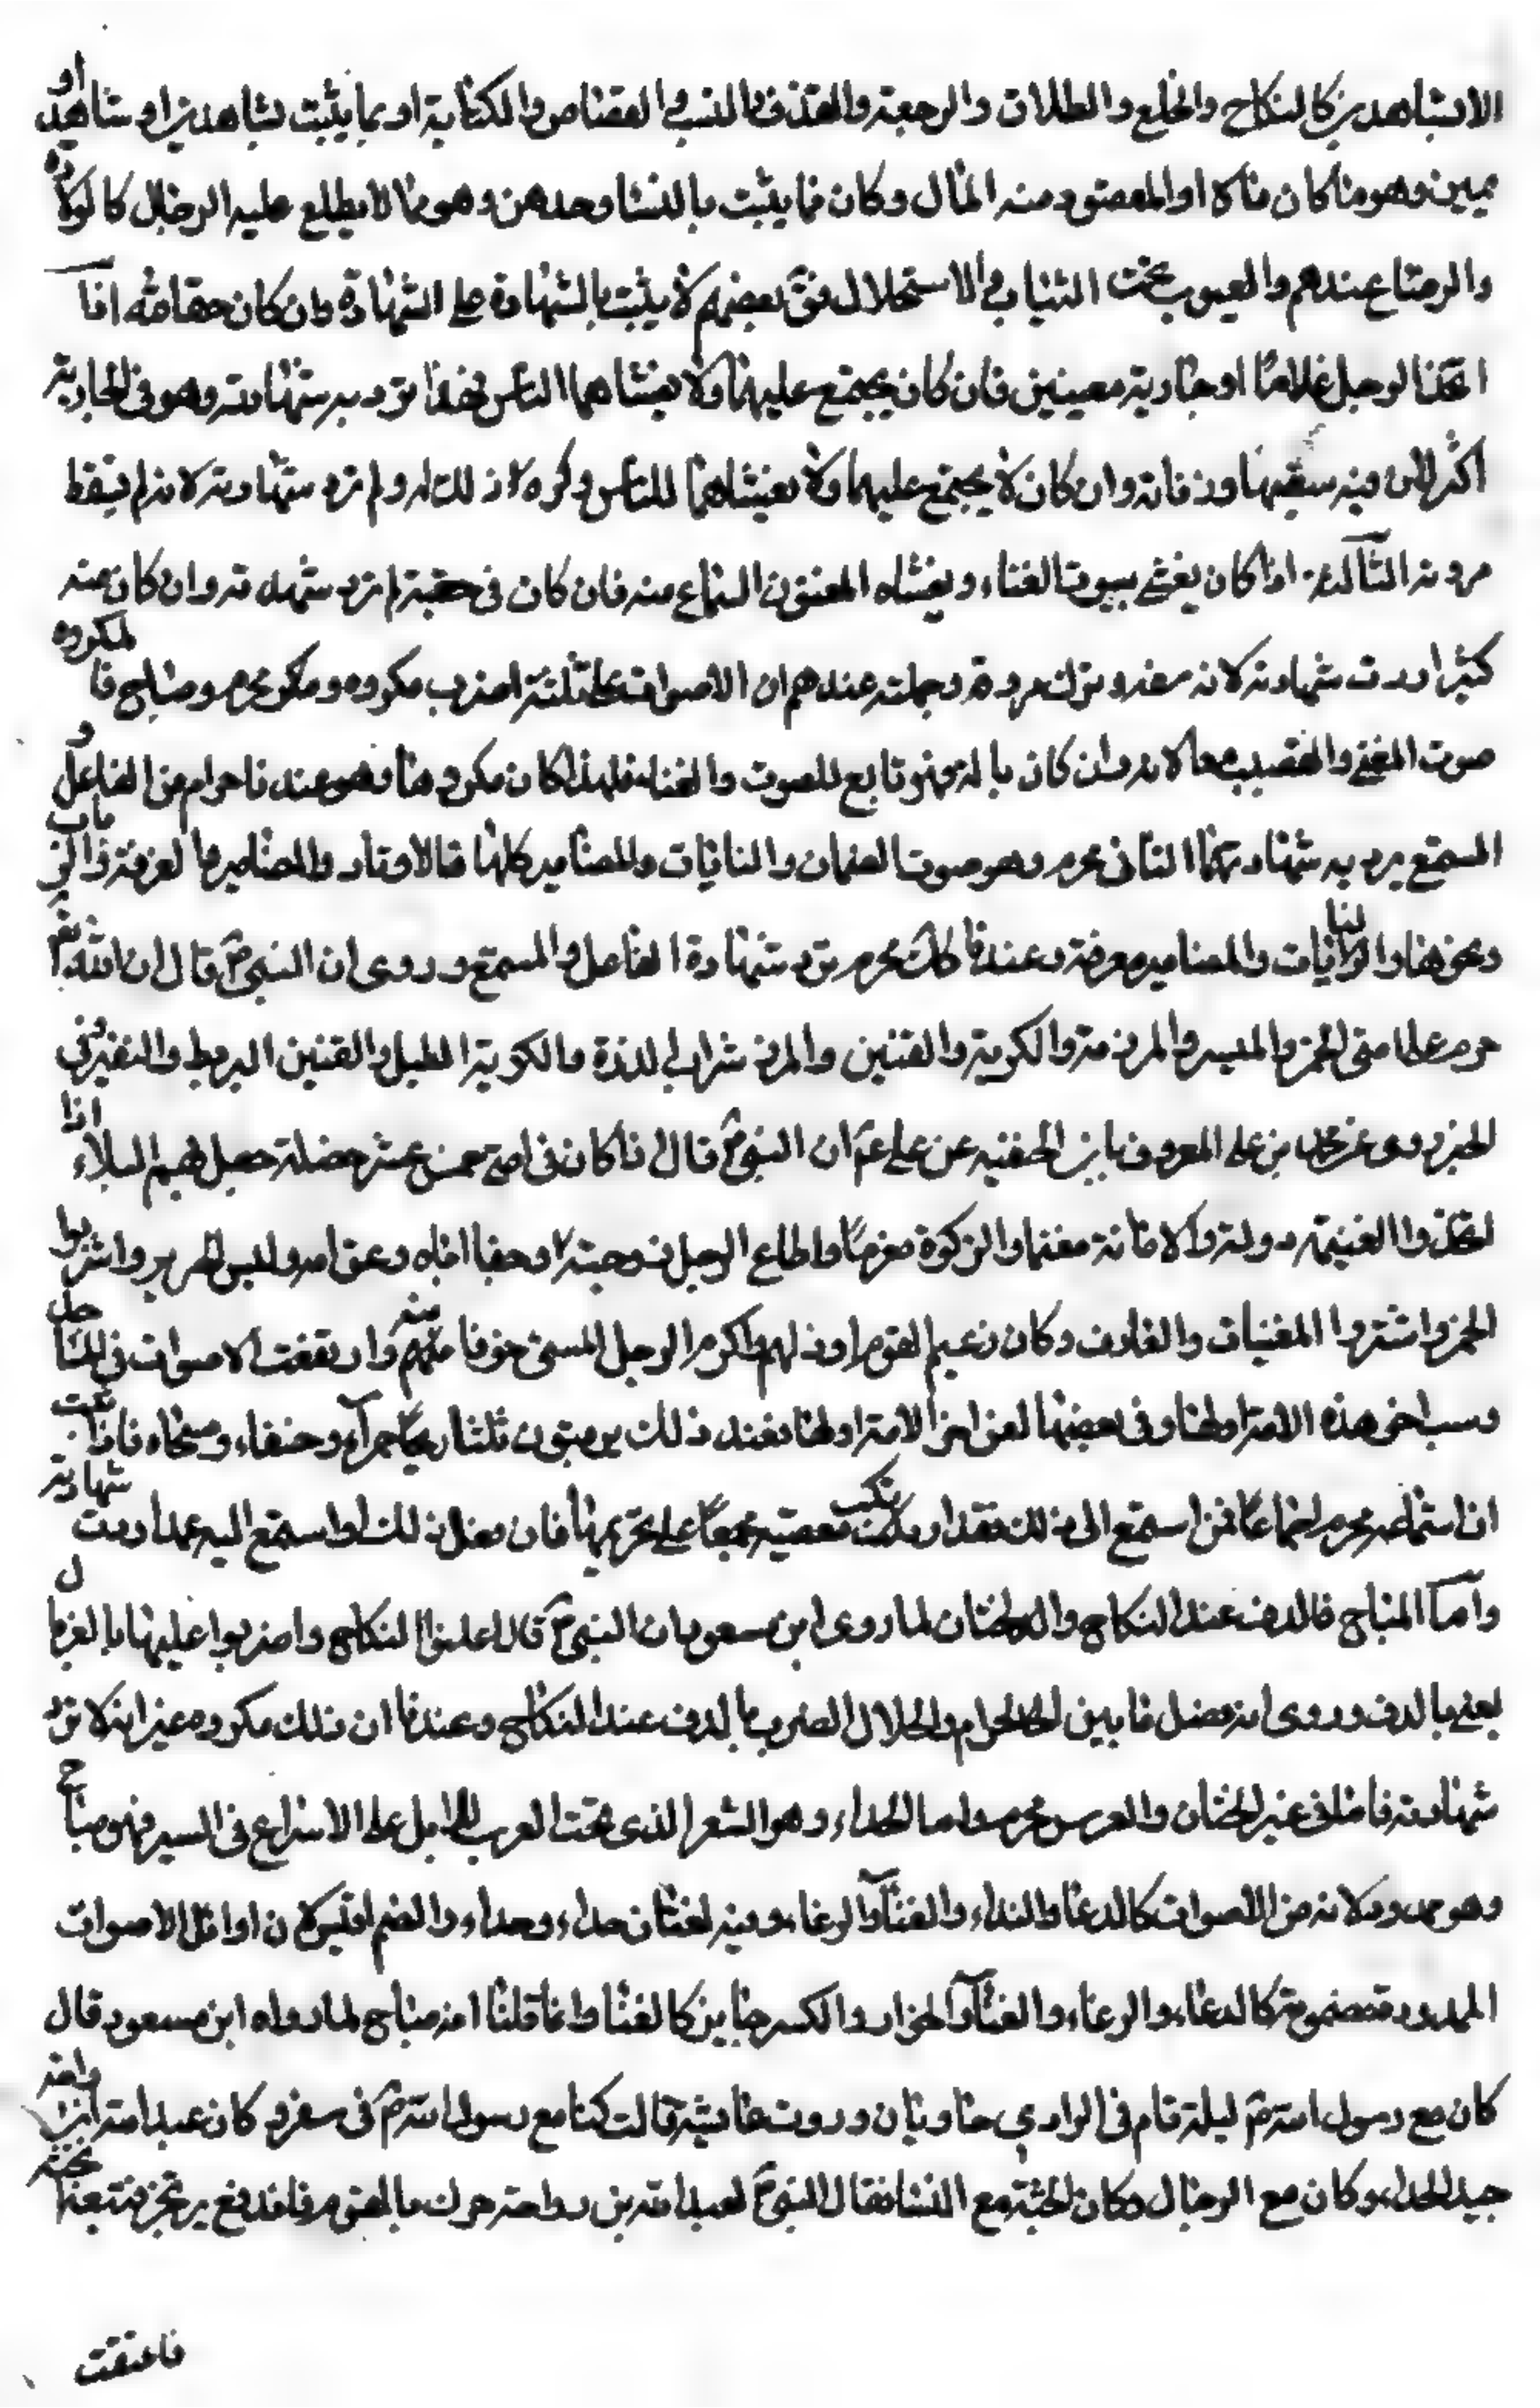 الا بشاهدين كالنكاح والخلع والطلاق والرجعة والقذف والنسب والقصاص والكتابة او بما يثبت بشاهدين او شاهد و
يمين وهو ما كان مالا او المقصود منه المال وكان فما يثبت بالنسا وحدهن وهو ما لا يطلع عليه الرجال كالولادة
والرضاع عندهم والعيوب تحت الثياب والاستحلال بعضهم لا يثبت بالشهادة على الشهادة وان كان حقا لله اذا
اتخذ الرجل غلاما او جارية مغنيين فان كان يجتمع عليهما ولا يغشاهما الناس فهذا ترد به شهادته وهو في الجارية
اكثر لان فيه سفها ودناءة وان كان لا يجتمع عليهما ولا يغشاهما الناس وكره ذلك له ولم ترد شهادته لانه لم يسقط
مروته الثالثة اذا كان يغشى بيوت الغناء ويغشاه المغنون السماع منه فان كان في خفية لم ترد شهادته وان كان منه
كثيرا ردت شهادته لانه سفه وترك مروة وجملته عندهم ان الاصوات على ثلثة اضرب مكروه ومحرم ومباح فالمكروه
صوت المغني والقصيب معا لانه وان كان باله فهو تابع للصوت والغناء فلهذا كان مكروها وهو عندنا حرام من الفاعل و
المستمع يرد به شهادتهما الثاني محرم وهو صوت العيدان والنايات والمزامير كلها فالاوتار والمزامير ما لعزفة والرباب
ونحوها والنايات والمزامير معرفة وعندنا كذلك محرم ترد شهادة الفاعل والمستمع وروى ان النبي ص قال ان الله
حرم على امتي الخمر والميسر والمزر والكوبة والقنين والمزر شراب الذرة والكوبة الطبل والقنين البربط والتفسير في
الخبر وروى عن محمد بن علي المعروف بابن الحنفيه عن علي ع ان النبي ص قال اذا كان في امتي خمس عشر خصلة حصل بهم البلاء اذا
اتخذوا الغنيمة دولة والامانة مغنما والزكوة مغرما واطاع الرجل زوجته وجفا اباه وعق امه ولبس الحرير وشربوا
الخمر واشتروا المغنيات والمعازف وكان زعيم القوم ارذلهم واكرم الرجل السوء خوفا منه وارتفعت الاصوات في المساجد
وسب اخر هذه الامة اولها وفي بعضها لعن اخر الامة اولها فعند ذلك يرقبون ثلثا ريحا حمرآء وخسفا ومسخا فاذا ثبت
ان استماعه محرم اجماعا فمن استمع الى ذلك فقد ارتكب معصية مجمعا على تحريمها فان فعل ذلك او استمع اليه عمدا ردت شهادته
وآما المباح فالدف عند النكاح والختان لما روى ابن مسعود ان النبي ص قال اعلنوا النكاح واضربوا عليه بالغربال
يعني بالدف وروى انه فصل ما بين الحرام والحلال الضرب بالدف عند النكاح وعندنا ان ذلك مكروه غير انه لا ترد
شهادته فاما في غير الختان والعرس محرم واما الحداء وهو الشعر الذي تحث العرب الابل على الاسراع في السير فهو مباح
وهو ممدود لانه من الاصوات كالدعا والنداء والغنآ والرغاء وفيه لغتان حداء وحداء والضم اقيس لان اوائل الاصوات
الممدودة مضمومة كالدعاء والرغاء والغنآ والخوار والكسر جايز كالغنا وانما قلنا انه مباح لما رواه ابن مسعود قال
كان مع رسول الله ص ليلة نام في الوادي حاديان وروت عايشة قالت كنا مع رسول الله ص في سفر وكان عبد الله بن رواحة
جيد الحداء وكان مع الرجال وكان انجشة مع النسا فقال النبي ص لعبد الله بن رواحة حرك بالقوم فاندفع يرتجز فتبعه انجشة
فاعنقت